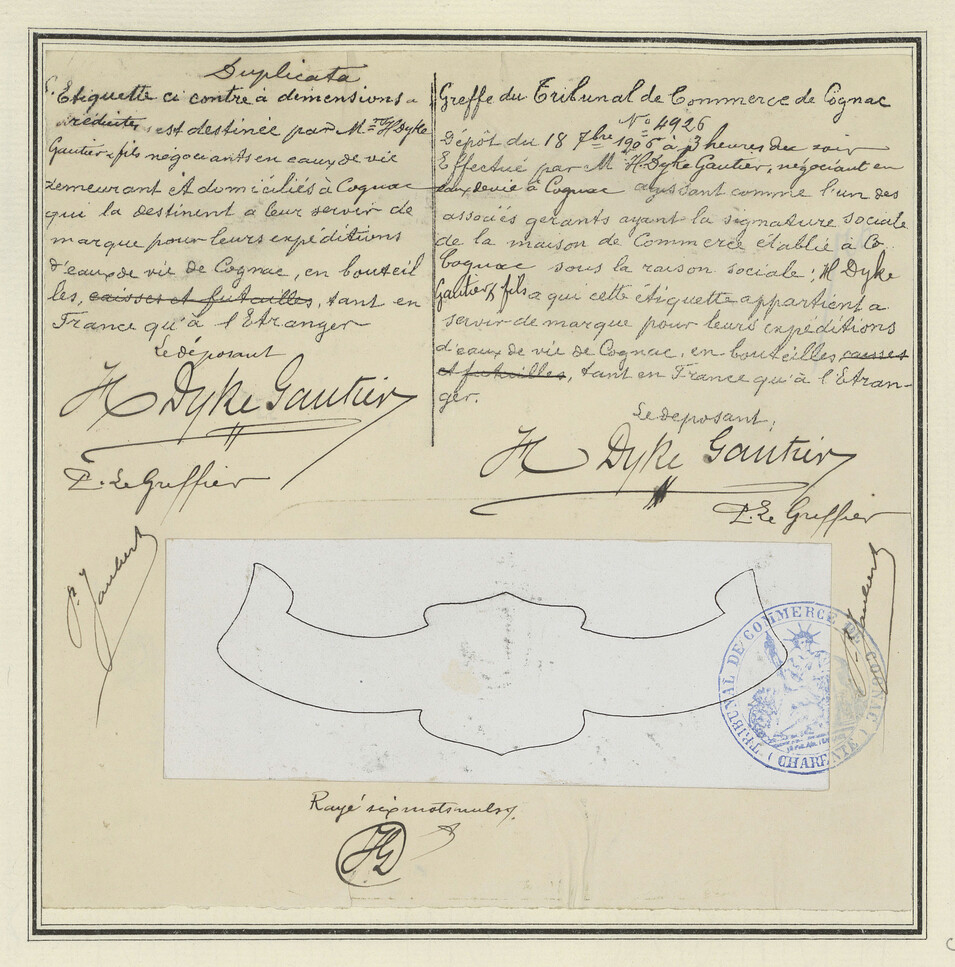 Duplicata
L'Etiquette ci contre à dimensions
réduites est destinée par Mrs H Dyke
Gautier & fils négociants en eaux de vie
demeurant et domiciliés à Cognac
qui la destinent à leur servir de
marque pour leurs expéditions
d'eaux de vie de Cognac, en bouteil
les, caisses et futailles, tant en
France qu'à l'Etranger
Le déposant
H Dyke Gautier
P. Le Greffier
P. Jaubert
Greffe du Tribunal de Commerce de Cognac
No 4926
Dépôt du 18 7bre 1906 à 3 heures du soir
Effectué par M H. Dyke Gautier, négociant en
eaux de vie à Cognac agissant comme l'un des
associés gerants ayant la signature sociale
de la maison de Commerce établie à Co
Cognac sous la raison sociale; H Dyke
Gautier & fils a qui cette étiquette appartient a
servir de marque pour leurs expéditions
d'eaux de vie de Cognac, en bouteilles caisses
et futailles, tant en France qu'à l'Etran-
ger.
Le déposant,
H Dyke Gautier
P. Le Greffier
Jaubert
TRIBUNAL DE COMMERCE DE COGNAC
(CHARENTE)
Rayé six mots nuls